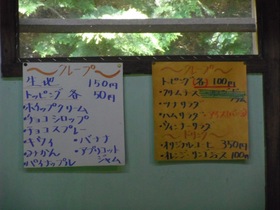 〜クレープ〜
生地 150円
トッピング 各50円
・ホイップクリーム
・チョコシロップ
・チョコスプレー
・キウイ ・バナナ
・みかん ・アプリコットジャム
・パイナップル
〜クレープ〜
トッピング 各100円
・ツナサラダ
・ハムサラダ
・ウィンナーサラダ
〜ドリンク〜
・オリジナル 350円
・オレンジ 100円